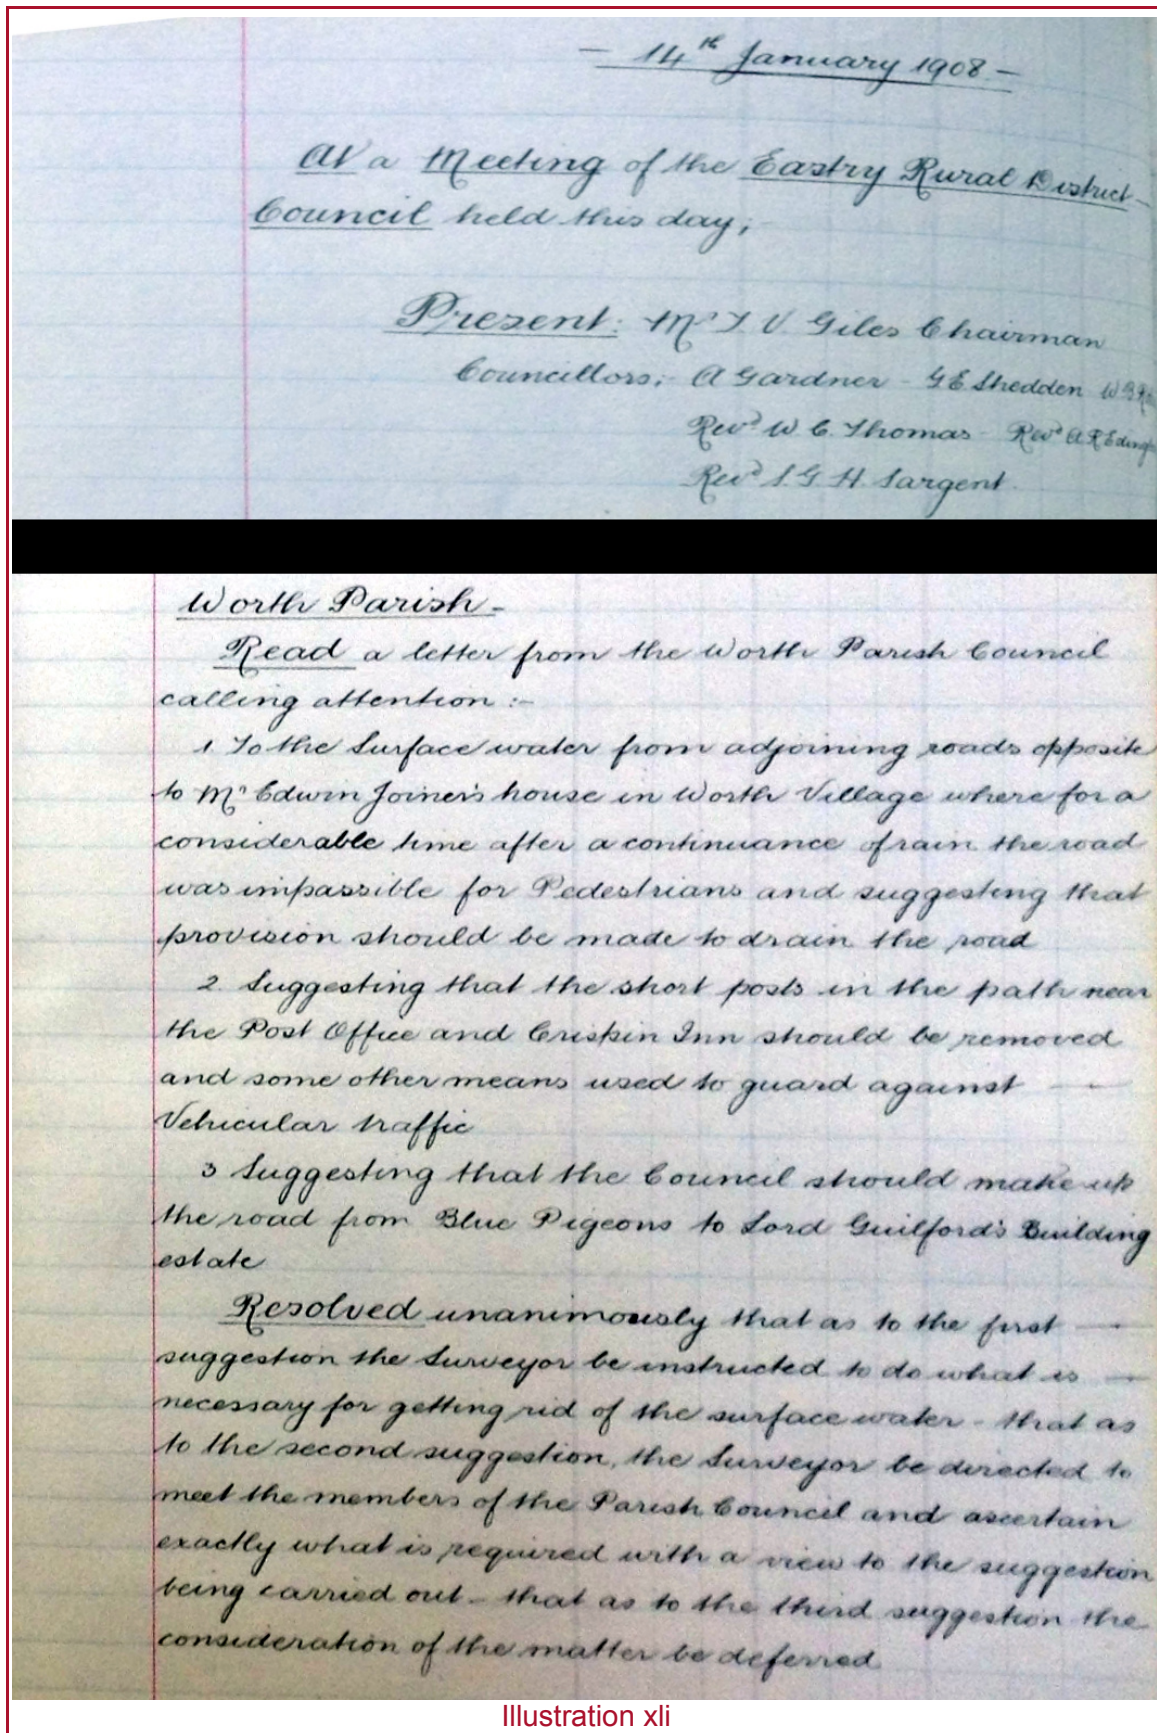 — 14th January 1908 —
At a Meeting of the Eastry Rural District
Council held this day;
Present: Mr T V Giles Chairman
Councillors: A Gardner - G E Shedden
Revd W. C. Thomas - Revd A R
Revd S. G H. Sargent.
Worth Parish -
Read a letter from the Worth Parish Council
calling attention :-
1 To the Surface water from adjoining roads opposite
to Mr Edwin Joiner's house in Worth Village where for a
considerable time after a continuance of rain the road
was impassible for Pedestrians and suggesting that
provision should be made to drain the road
2. Suggesting that the short posts in the path near
the Post Office and Crispin Inn should be removed
and some other means used to guard against —
Vehicular traffic
3 Suggesting that the Council should make up
the road from Blue Pigeons to Lord Guilford's Building
estate
Resolved unanimously that as to the first —
suggestion the Surveyor be instructed to do what is —
necessary for getting rid of the surface water - that as
to the second suggestion, the Surveyor be directed to
meet the members of the Parish Council and ascertain
exactly what is required with a view to the suggestion
being carried out - that as to the third suggestion the
consideration of the matter be deferred
Illustration xli